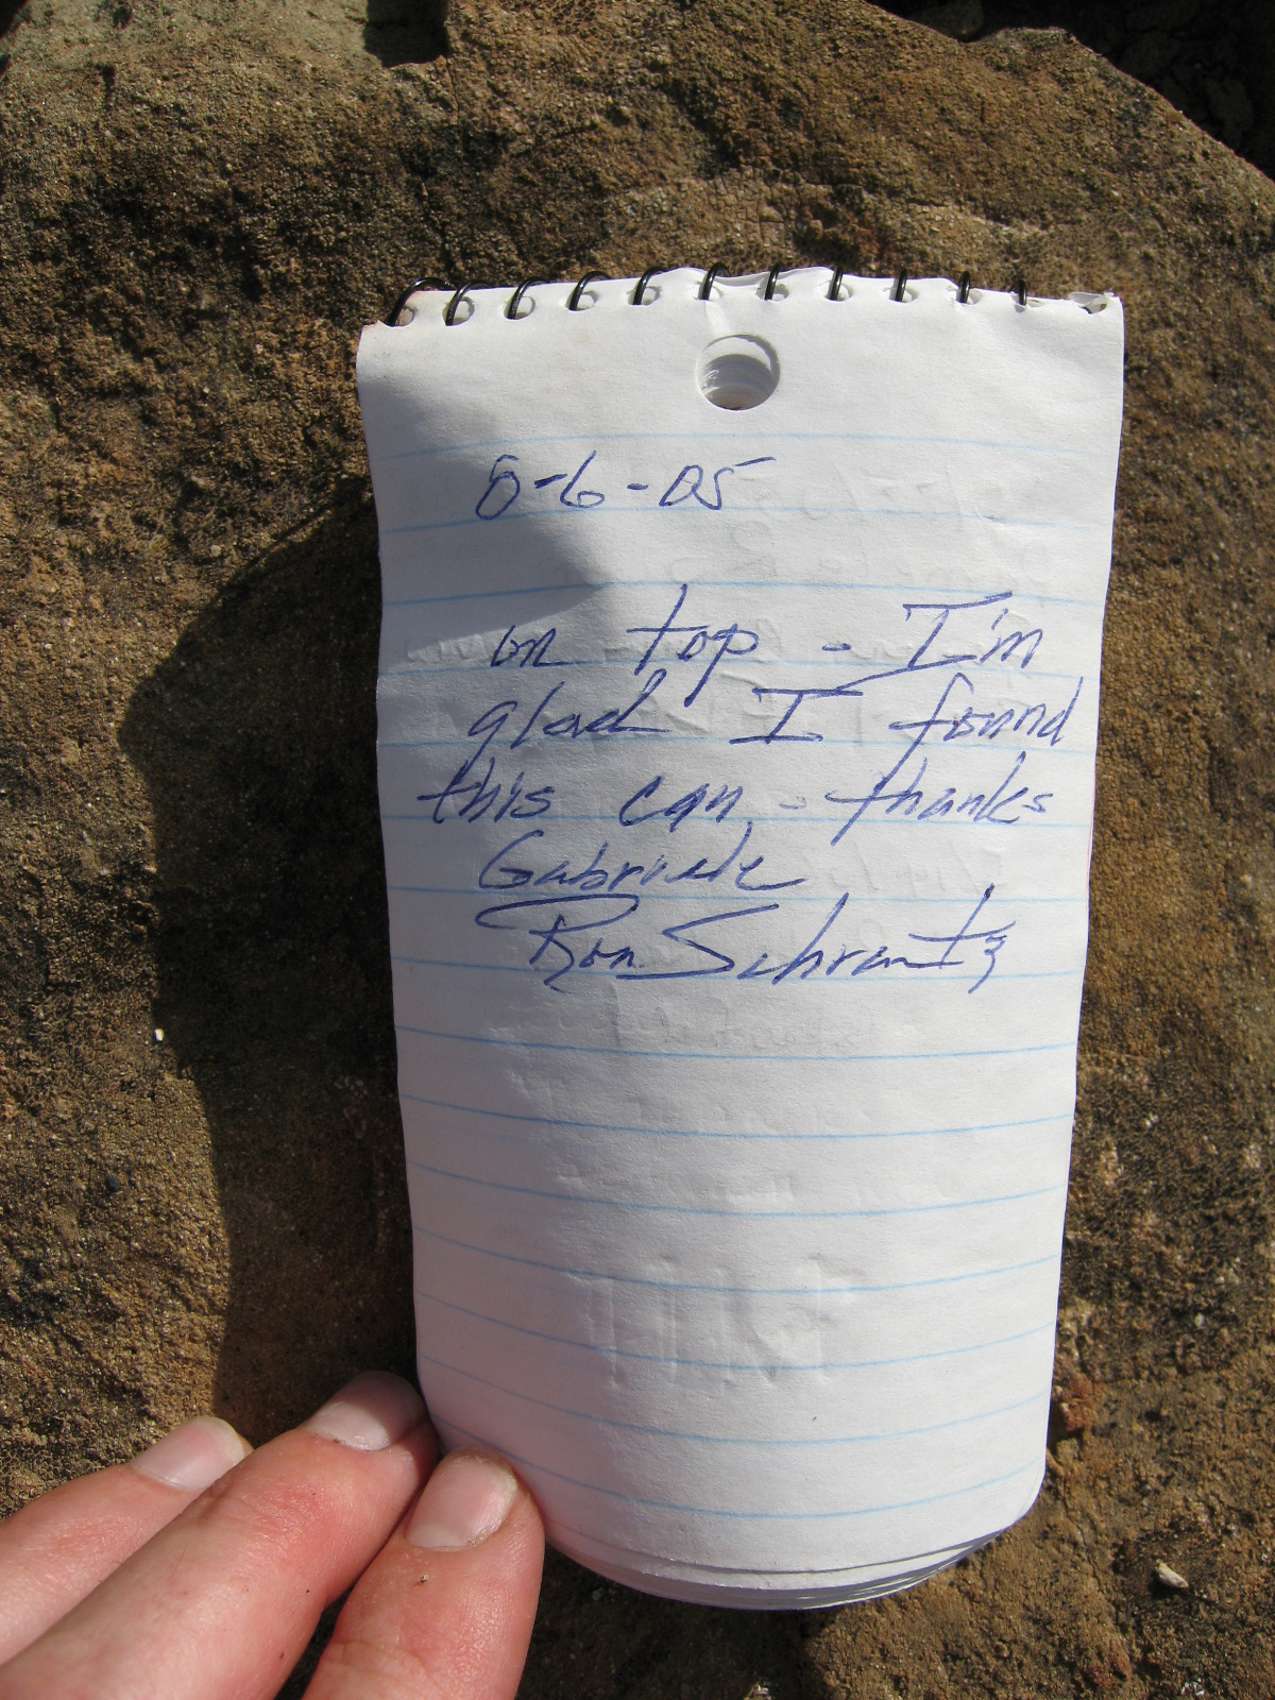 8-6-05
on top - I'm
glad I found
this can - thanks
Gabriele
Ron Schrantz